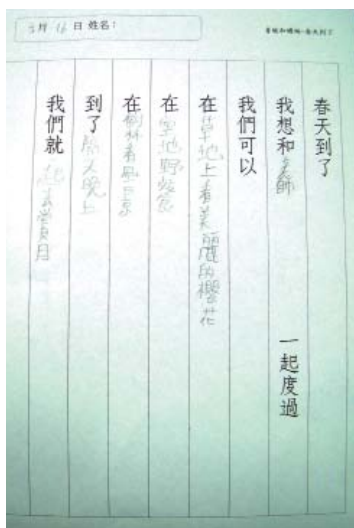 3月16日 姓名：
春天到了
我想和老師 一起度過
我們可以
在草地上看美麗的櫻花
在里地野炊食
在樹林看風景
到了 晚上
我們就一起去賞月